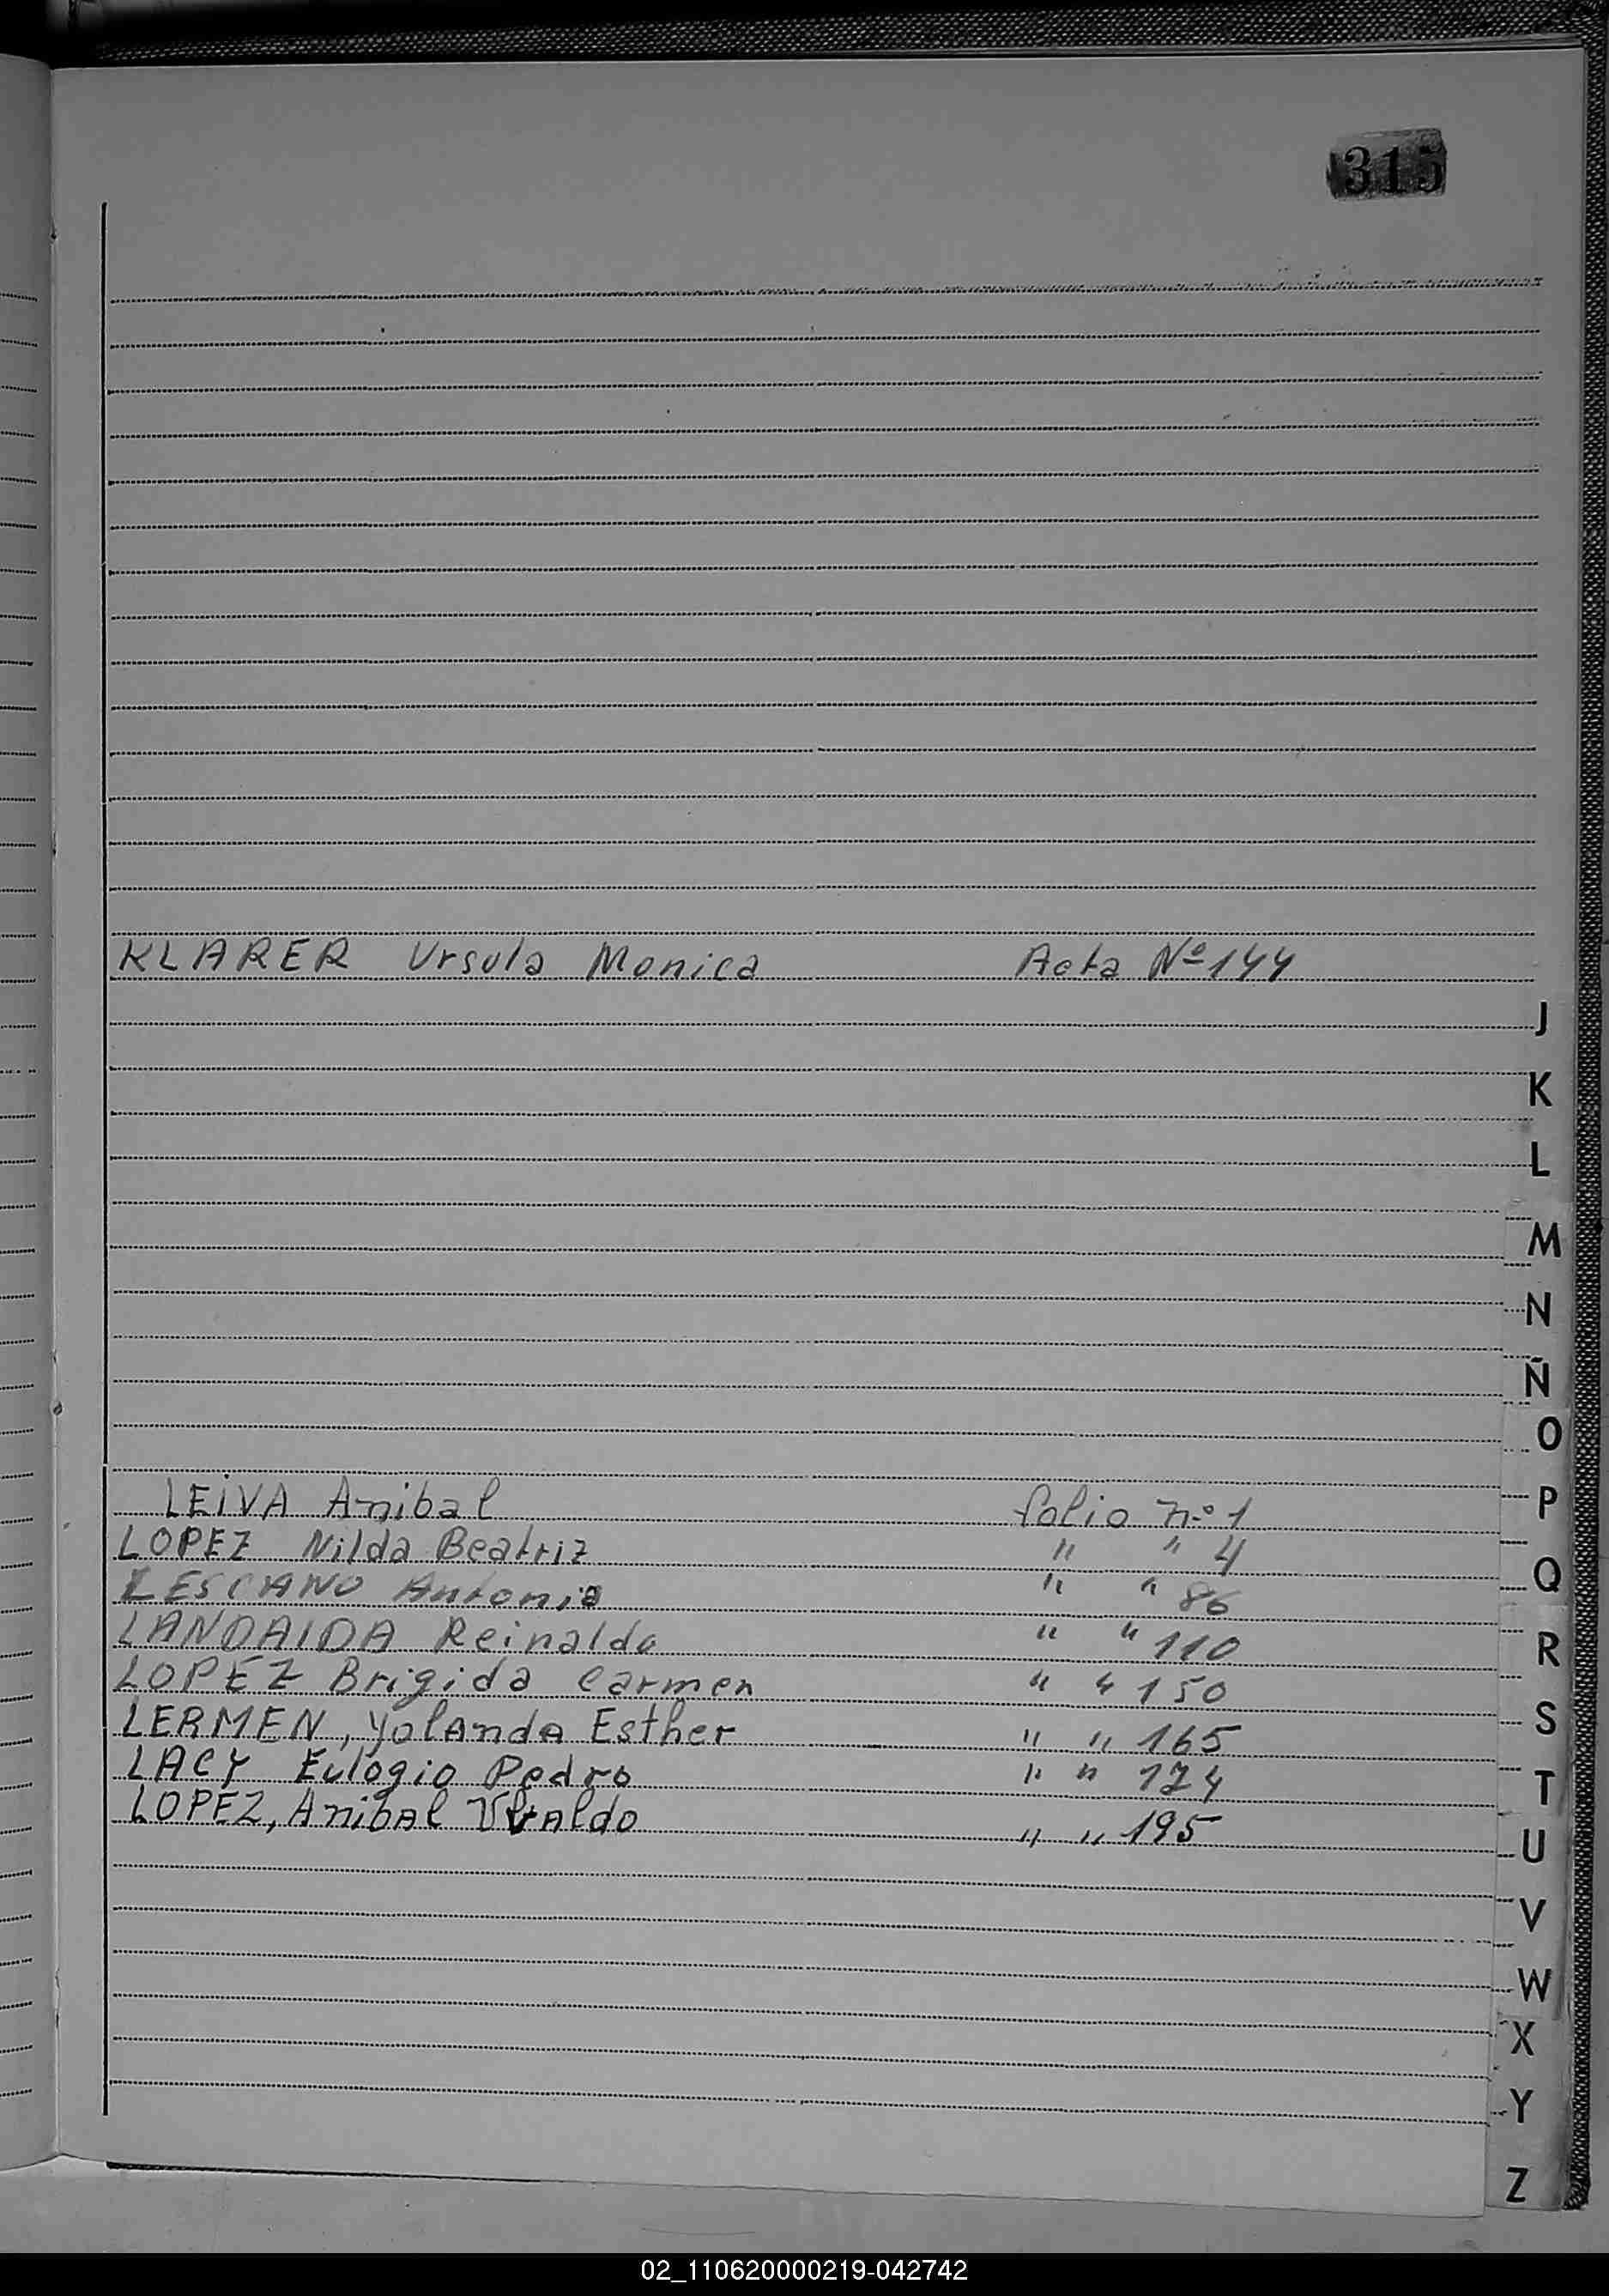 315
KLARER Ursula Monica Acta Nº 144
J
K
L
M
N
Ñ
O
LEIVA Anibal folio n.º 1
P
LOPEZ Nilda Beatriz " " 4
Q
LESCANO Antonia " " 86
LANDAIDA Reinaldo " " 110
R
LOPEZ Brigida Carmen " " 150
LERMEN, Yolanda Esther " " 165
S
LACY Eulogio Pedro " " 174
T
LOPEZ, Anibal " " 195
U
V
W
X
Y
Z
02_110620000219-042742